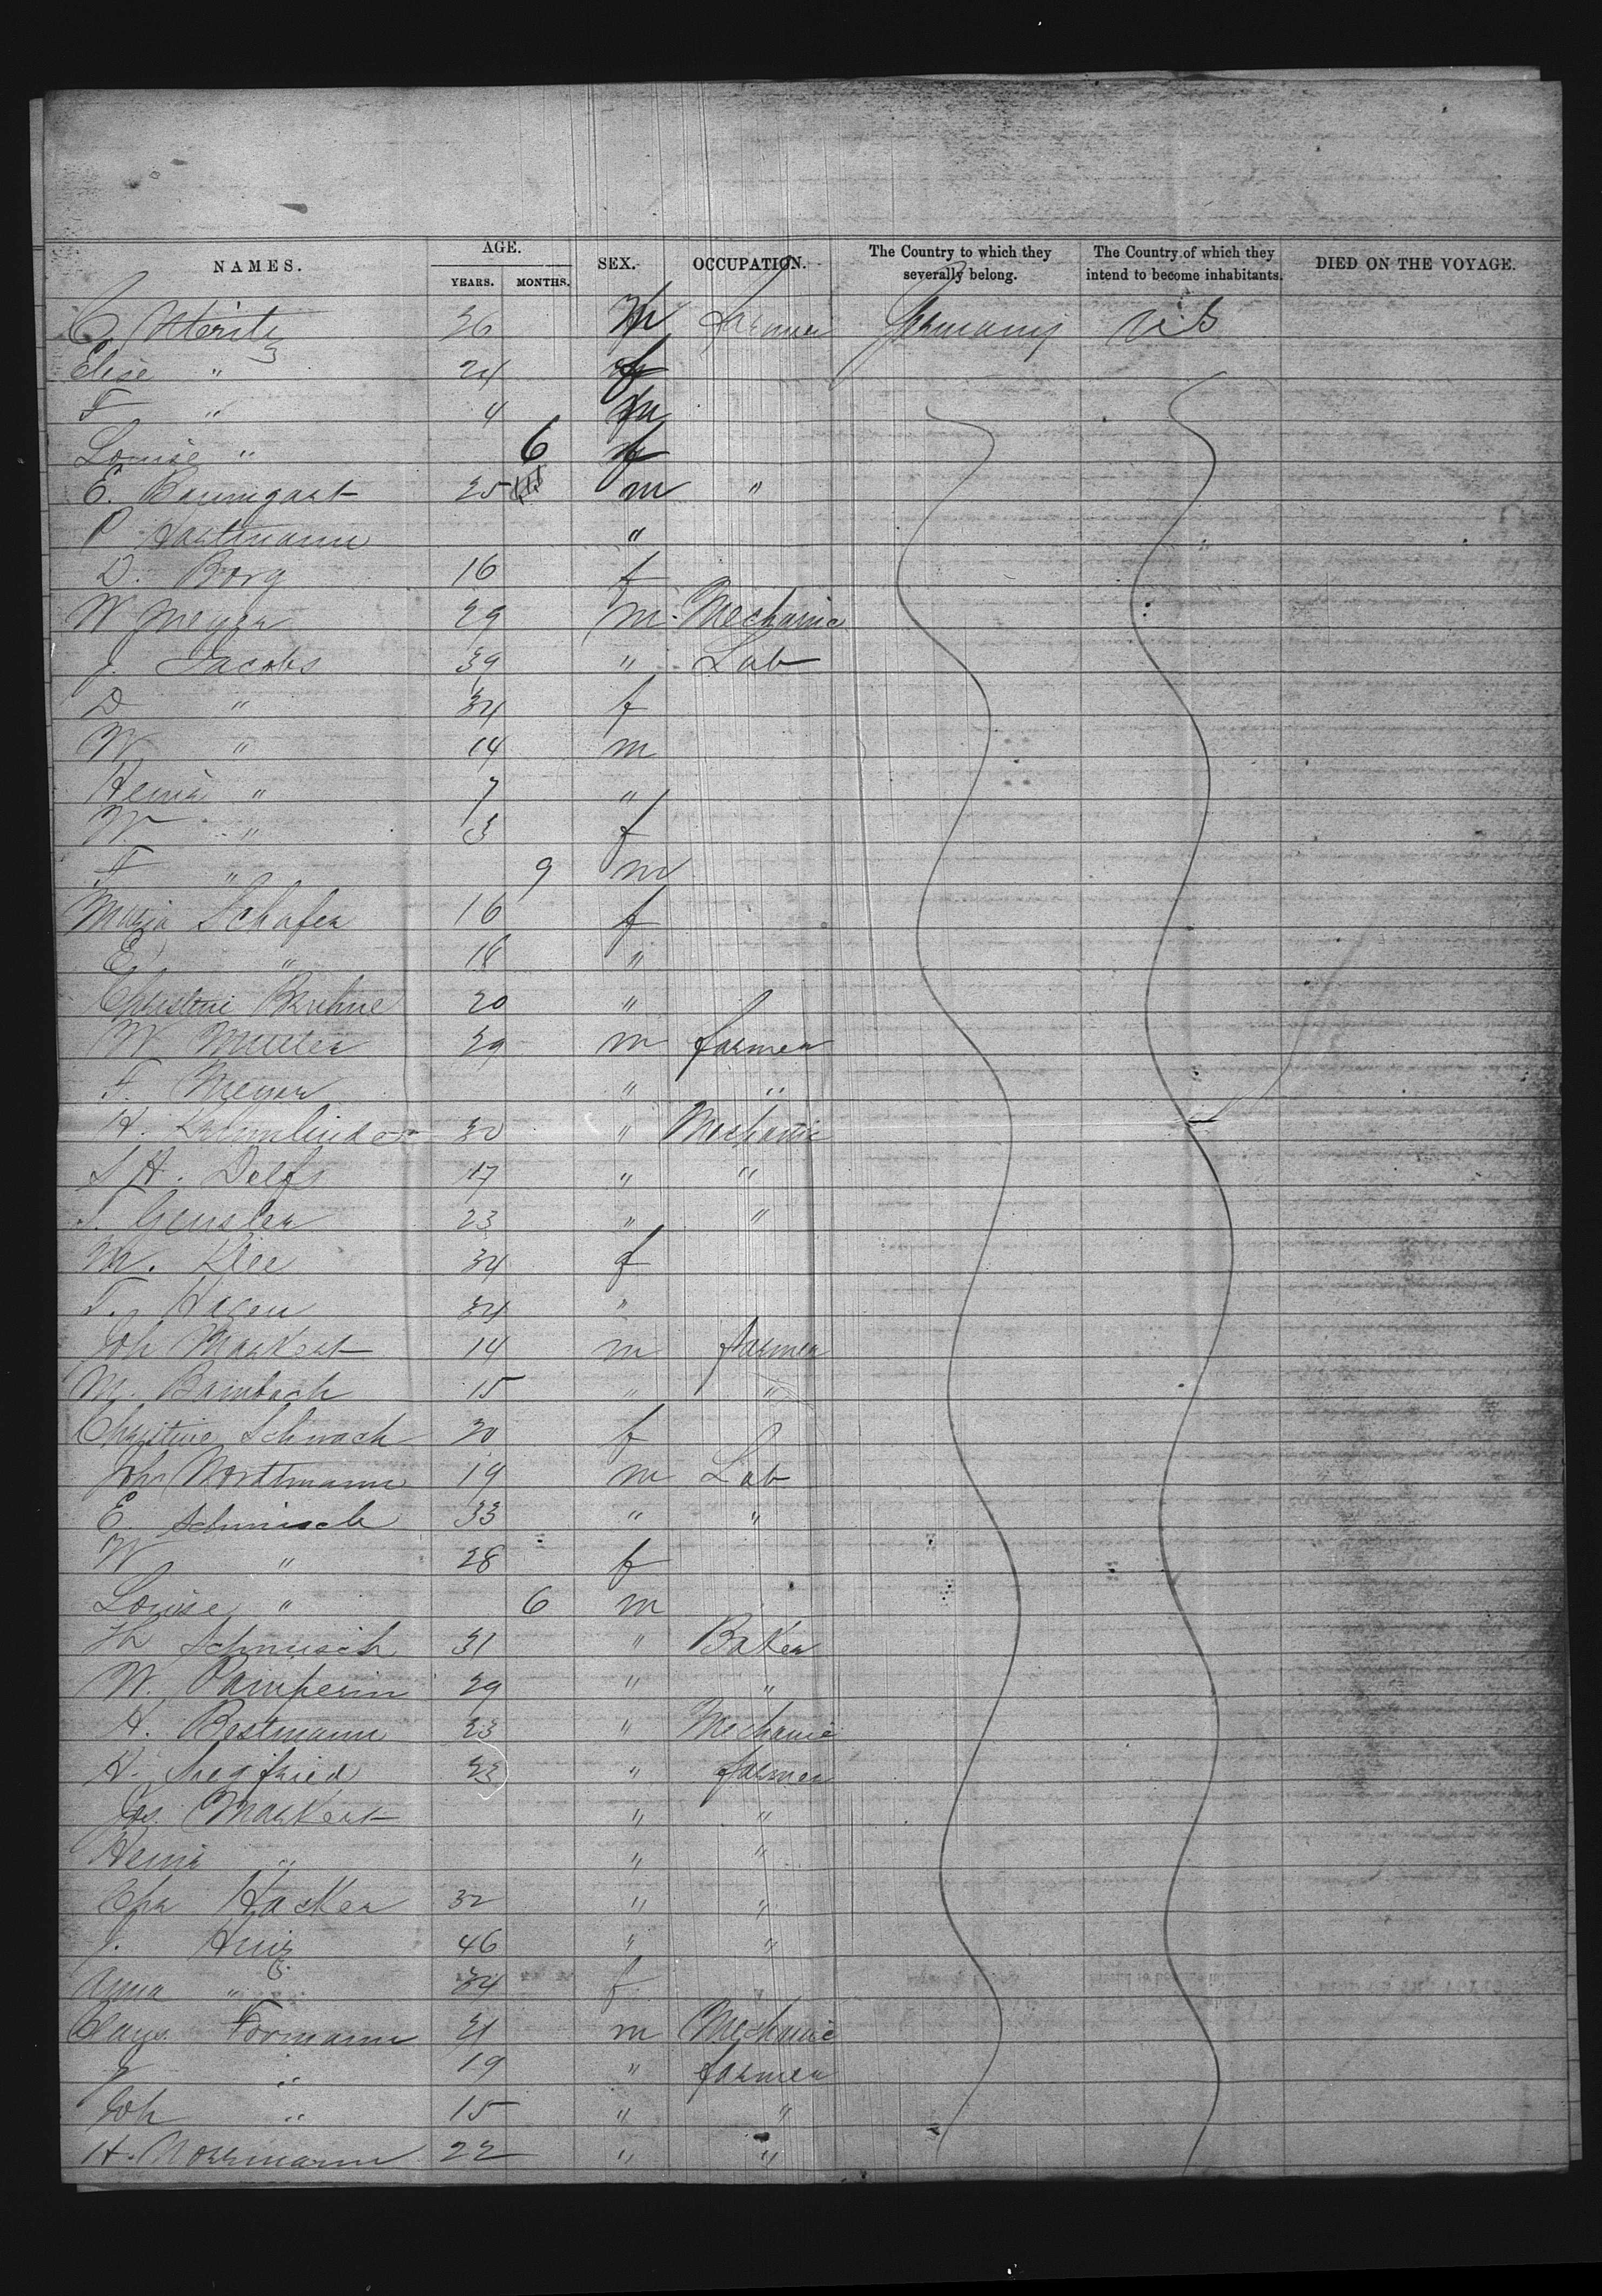 NAMES. AGE. SEX. OCCUPATION. The Country to which they severally belong. The Country of which they intend to become inhabitants. DIED ON THE VOYAGE.
YEARS. MONTHS.
C. 26 M Farmer Germany U.S
Elise " 24 f
F " 4 m
Louise " 6 f
E. Baumgart 25 m "
P Hartmann "
D. Borg 16 f
W Meyer 29 m Mechanic
J. Jacobs 39 " Lab
D " 34 f
W " 14 m
Heinr " 7 "
W " 3 f
F " 9 m
Maria Schafer 16 f
E " 18 "
Christine Bruhne 20 "
W Muller 29 m farmer
F. Meyer " "
H. 30 " Mechanic
S H. Delfs 17 " "
S. Gensler 23 " "
M. Klee 34 f
T. Hagen 34 "
Joh Markert 14 m farmer
M. Bambach 15 " "
Christine Schwach 20 f
Joh Northmann 19 m Lab
E. Schmisch 33 " "
W " 28 f
Louise " 6 m
Th Schmisch 31 " Baker
W. Pamperin 29 " "
H. Bestmann 23 " Mechanic
H. Siegfried 23 " farmer
Jos. Markert " "
Heinr " " "
Chr Hacker 32 " "
J. 46 " "
Anna " 34 f
Claus Formann 21 m Mechanic
J " 19 " farmer
Joh " 15 " "
H. Norrmann 22 " "